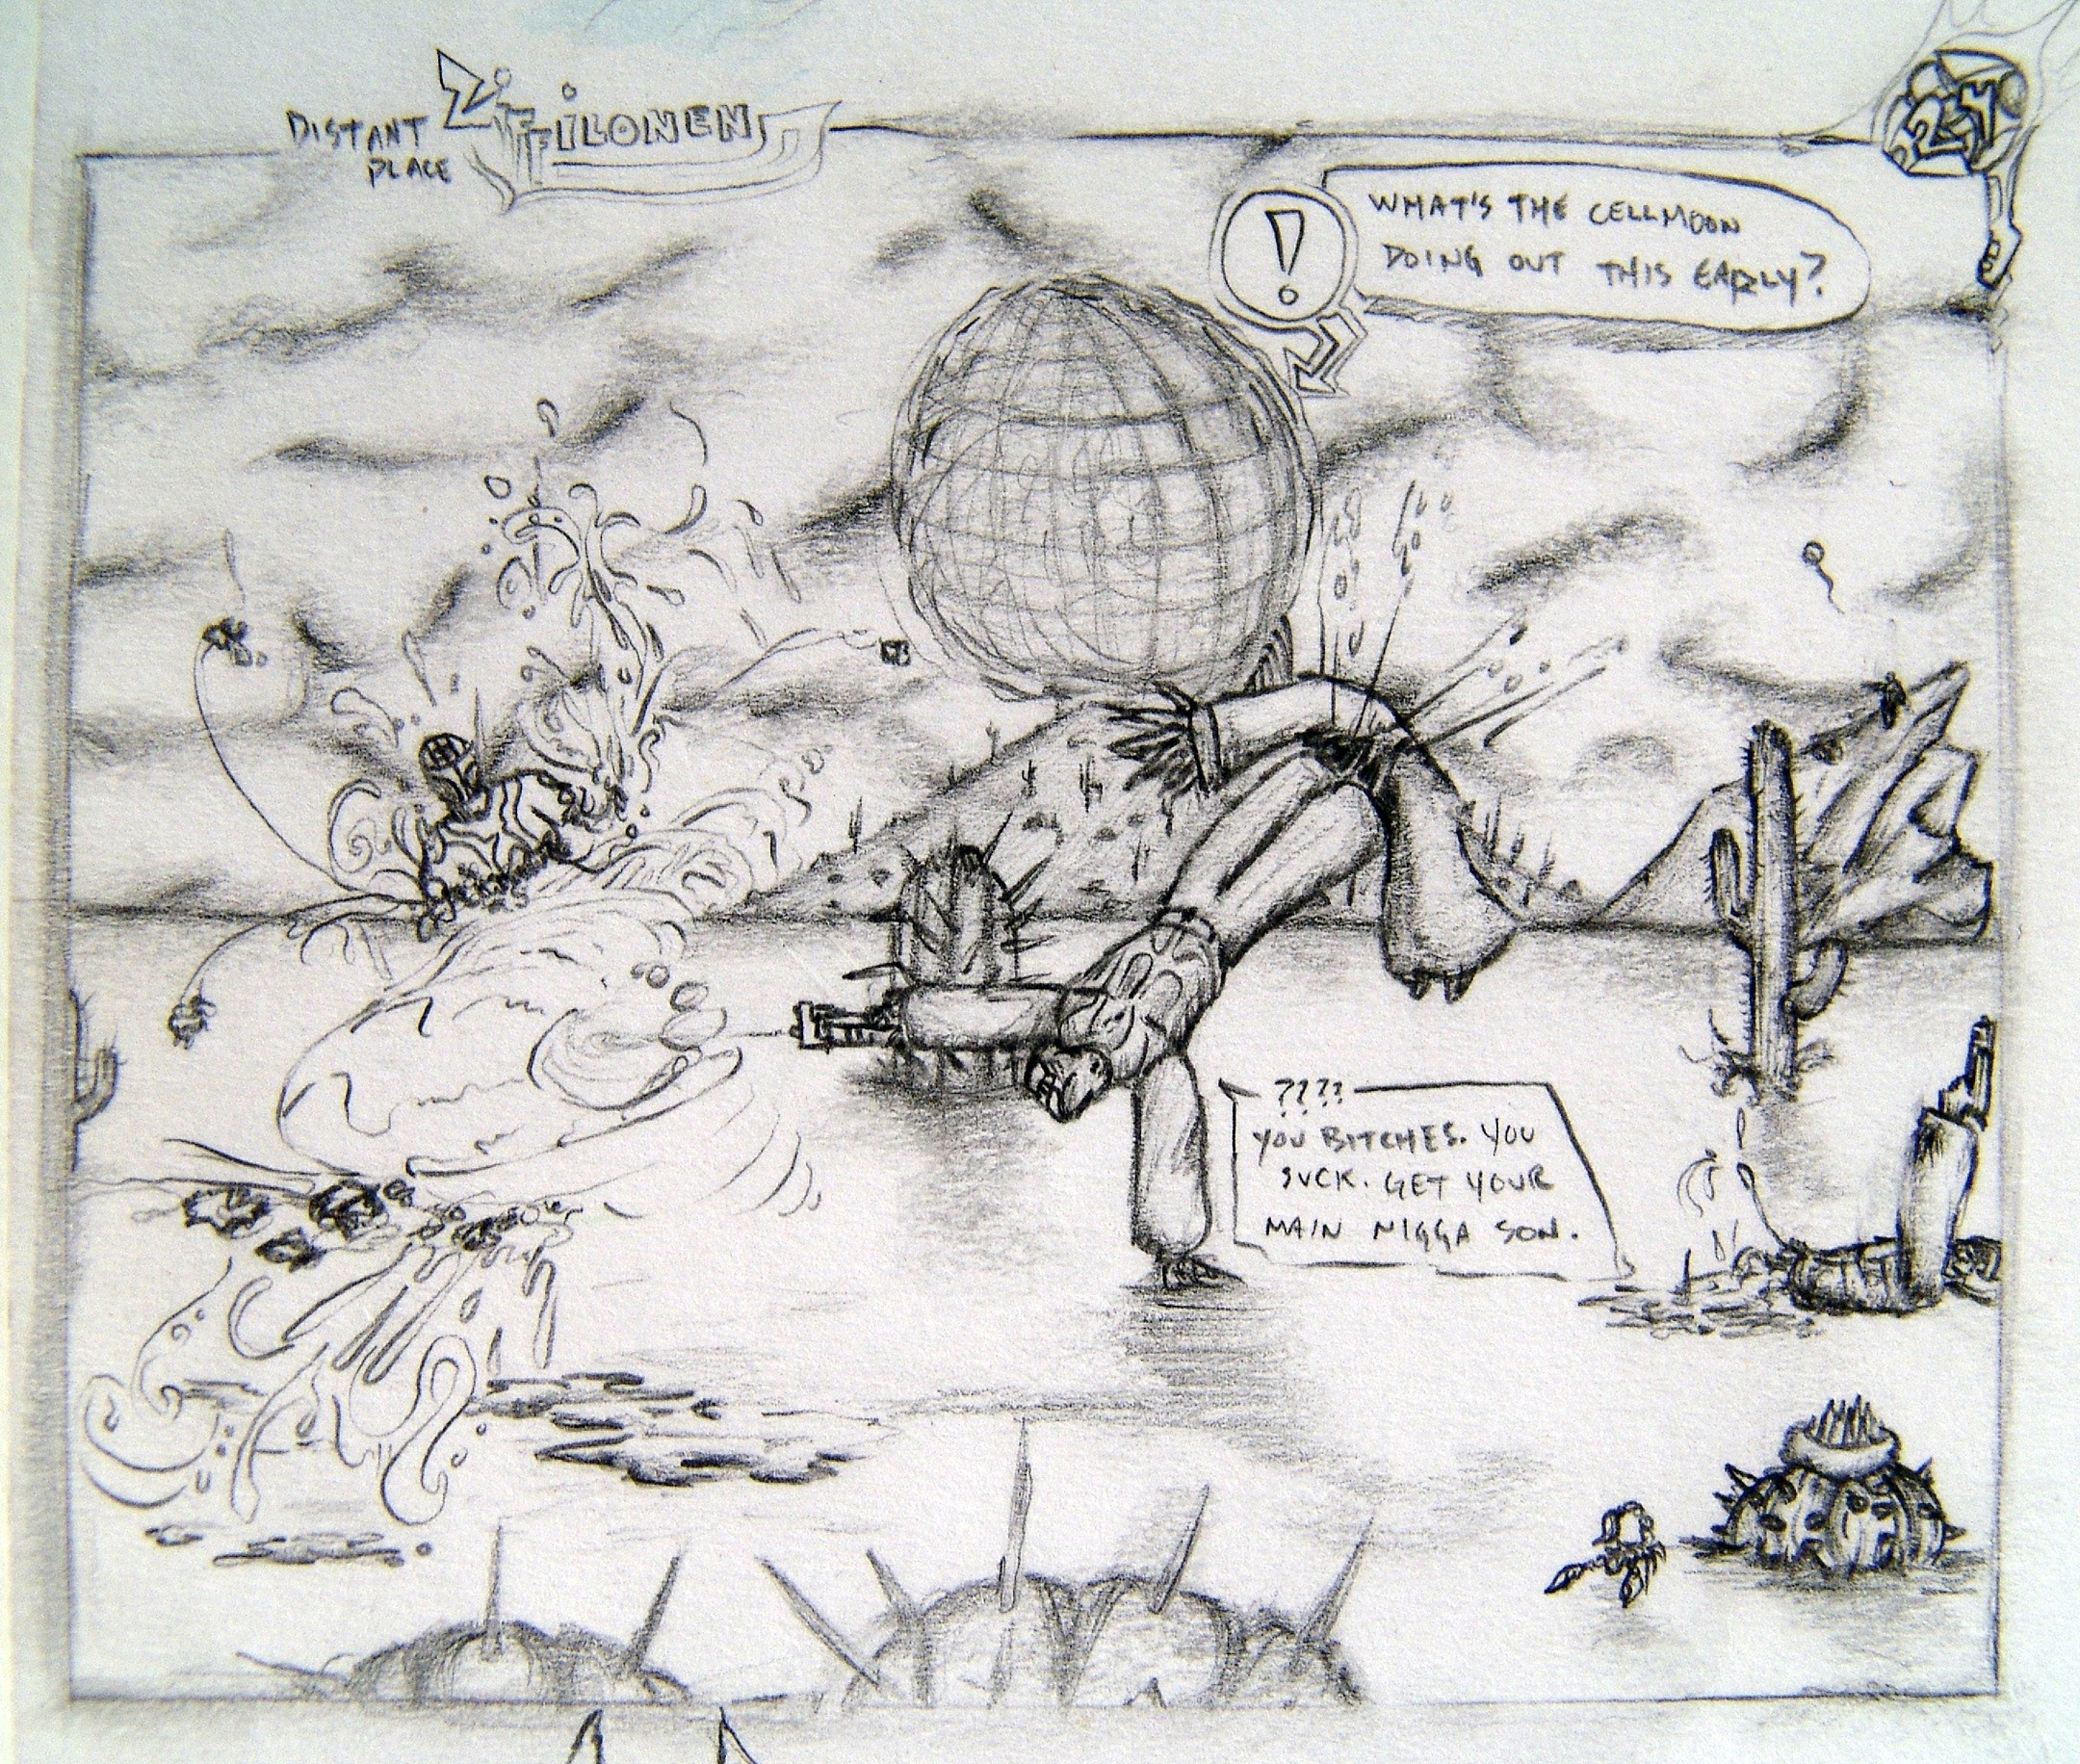 DISTANT
PLACE
ZIFFILONEN
!
WHAT'S THE CELLMOON
DOING OUT THIS EARLY?
????
YOU BITCHES. YOU
SUCK. GET YOUR
MAIN NIGGA SON.